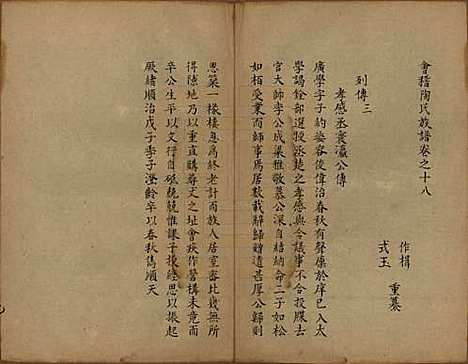 會稽陶氏族譜卷之十八
作楫
式玉 重纂
列傳三
孝感丞寰瀛公傳
廣學字子約姿容俊偉治春秋有聲廩於庠已入太
學謁銓部選授丞楚之孝感與令議事不合投牒去
官大師李公成梁雅敬慕公深自結納命二子如松
如栢受業而歸事為居數載辭歸贈遺甚厚公歸則
思築一椽棲息為終老計而故入居室審比幾不
得隙地乃以重直購尋丈之址會疾作營構未竟而
卒公生平以文行自砥兢兢惟課子操繩思以振起
厥緒順治戊子季子澄齡卒以春秋雋順天